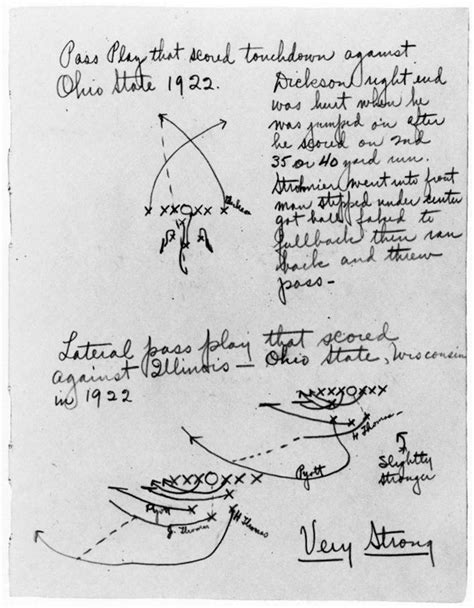 Pass Play that scored touchdown against
Ohio State 1922.
Dickson right end
was hurt when he
was jumped on after
he scored on 2nd
35 or 40 yard run.
Strohmier went into front
man stepped under center
got ball faked to
fullback then ran
back and threw
pass-
Lateral pass play that scored
against Illinois - Ohio State, Wisconsin
in 1922
H Thomas
Pyott
Slightly
stronger
Pyott
J. Thomas
H Thomas
Very Strong